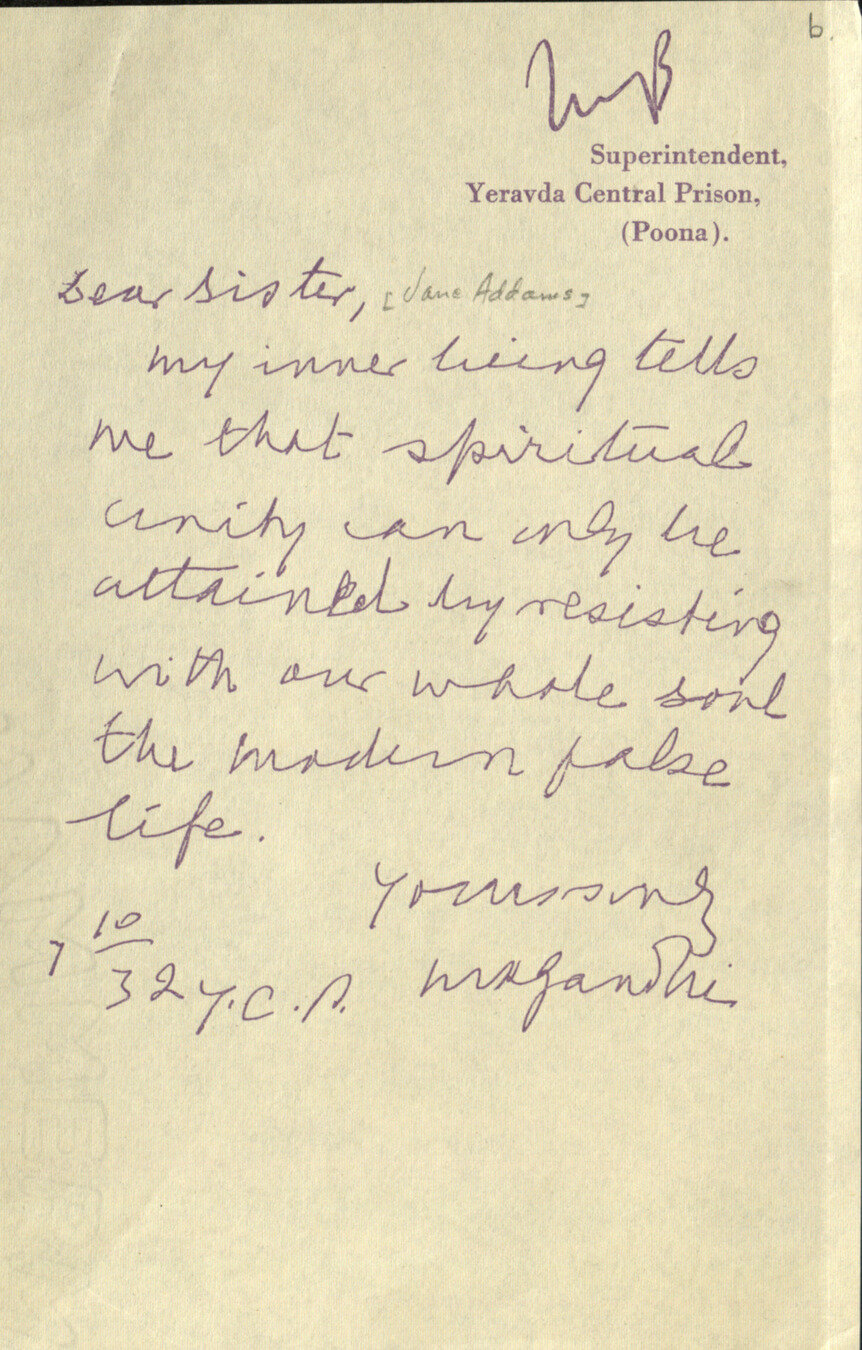 6.
Superintendent,
Yeravda Central Prison,
(Poona).
Dear Sister, [Jane Addams]
My inner being tells
me that spiritual
unity can only be
attained by resisting
with our whole soul
the modern false
life.
Yours sincly
7 10/32 Y.C.P. MKGandhi